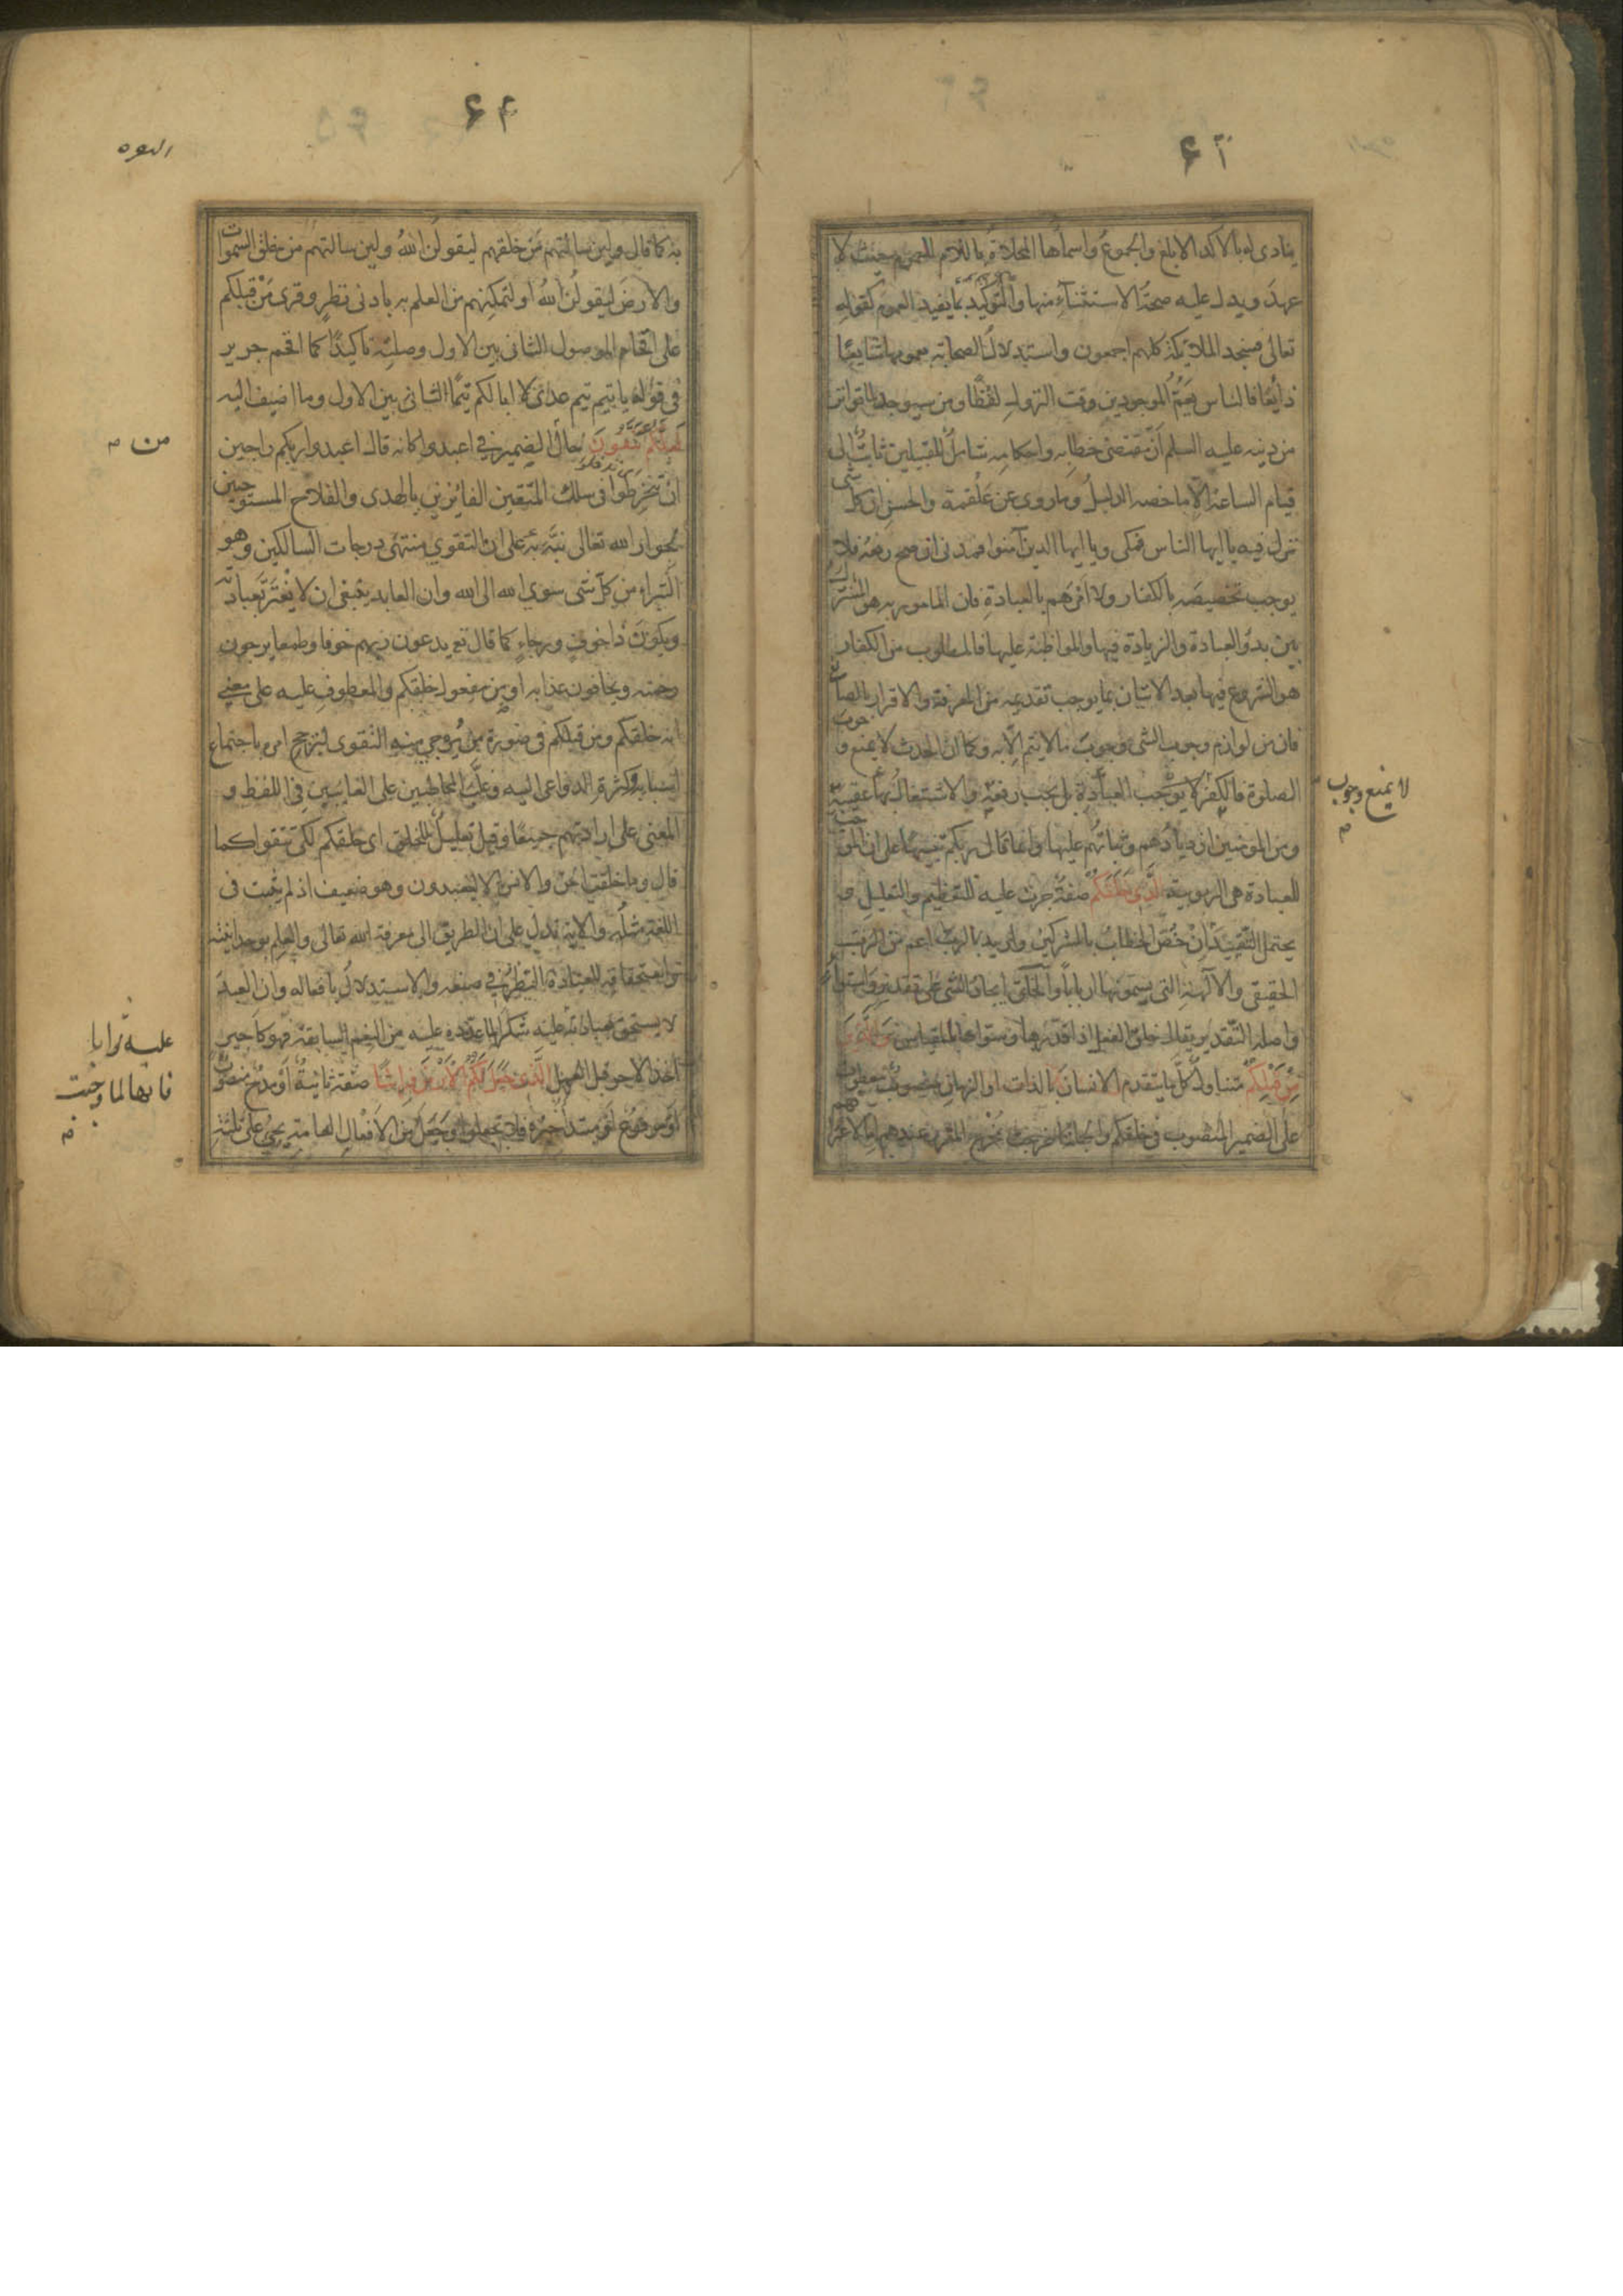 ينادى له بالاكد الابلغ والجموع واسماؤها المحلاة باللام للعموم حيث لا
عهد ويدل عليه صحة الاستثناء منها والتوكيد بما يفيد العموم كقوله
تعالى فسجد الملائكة كلهم اجمعون واستدلال الصحابة بعمومها شايعا
ذايعا فالناس يعم الموجودين وقت النزول لفظا ومن سيوجد لما تواتر
من دينه عليه السلم ان مقتضى خطابه واحكامه شامل للقبيلين ثابت الى
قيام الساعة الا ما خصه الدليل وما روى عن علقمة والحسن ان كل شئ
نزل فيه يا ايها الناس فمكى ويا ايها الذين آمنوا فمدنى ان صح رفعه فلا
يوجب تخصيصه بالكفار ولا امرهم بالعبادة فان المامور به هو المشترك
بين بدو العبادة والزيادة فيها والمواظبة عليها فالمطلوب من الكفار
هو الشروع فيها بعد الاتيان بما يوجب تقديمه من المعرفة والاقرار بالصانع
فان من لوازم وجوب الشئ وجوب ما لا يتم الا به وكما ان الحدث لا يمنع وجوب
الصلوة فالكفر لا يوجب العبادة بل يجب رفعه والاشتغال بها عقيبه
لا يمنع وجوب
ومن المومنين ازديادهم وثباتهم عليها وانما قال ربكم تنبيها على ان الموجب
للعبادة هى الربوبية الذى خلقكم صفة جرت عليه للتعظيم والتعليل و
يحتمل التقييد ان خص الخطاب بالمشركين واريد بالرب اعم من الرب
الحقيقى والآلهة التى يسمونها اربابا والخلق ايجاد الشئ على تقدير واستواء
واصله التقدير يقال خلق النعل اذا قدرها وسواها بالمقياس والذين
من قبلكم متناول كل ما يتقدم الانسان بالذات او الزمان منصوب معطوف
على الضمير المنصوب فى خلقكم والجملة خرجت مخرج المقرر عندهم اما لاعترافهم
البقره
به كما قال ولين سالتهم من خلقهم ليقولن الله ولين سالتهم من خلق السموات
والارض ليقولن الله او لتمكنهم من العلم به بادنى نظر وقرى من قبلكم
على اقحام الموصول الثانى بين الاول وصلته تاكيدا كما اقحم جرير
فى قوله يا تيم تيم عدى لا ابا لكم تيما الثانى بين الاول وما اضيف اليه
لعلكم تتقون حال الضمير فى اعبدوا كانه قال اعبدوا ربكم راجين
من
ان تنخرطوا فى سلك المتقين الفائزين بالهدى والفلاح المستوجبين
لجوار الله تعالى نبه به على ان التقوى منتهى درجات السالكين وهو
التبراء من كل شئ سوى الله الى الله وان العابد ينبغى ان لا يغتر بعبادته
ويكون ذا خوف ورجاء كما قال تع يدعون ربهم خوفا وطمعا يرجون
رحمته ويخافون عذابه او من مفعول خلقكم والمعطوف عليه على معنى
انه خلقكم ومن قبلكم فى صورة من يرجى منه التقوى لترجح امره باجتماع
اسبابه وكثرة الدواعى اليه وغلب المخاطبين على الغايبين فى اللفظ و
المعنى على ارادتهم جميعا وقيل تعليل للخلق اى خلقكم لكى تتقوا كما
قال وما خلقت الجن والانس الا ليعبدون وهو ضعيف اذ لم يثبت فى
اللغة مثله والاية تدل على ان الطريق الى معرفة الله تعالى والعلم بوحدانيته
واستحقاقه للعبادة النظر فى صنعه والاستدلال بافعاله وان العبد
لا يستحق بعبادته عليه شكرا لما عدده عليه من النعم السابقة فهو كاجير
عليه ثوابا
فانها لما وجبت
اخذ الاجر قبل العمل الذى جعل لكم الارض فراشا صفة ثانية او مدح منصوب
او مرفوع او مبتدا خبره فلا تجعلوا وجعل من الافعال العامة يجئ على ثلثة